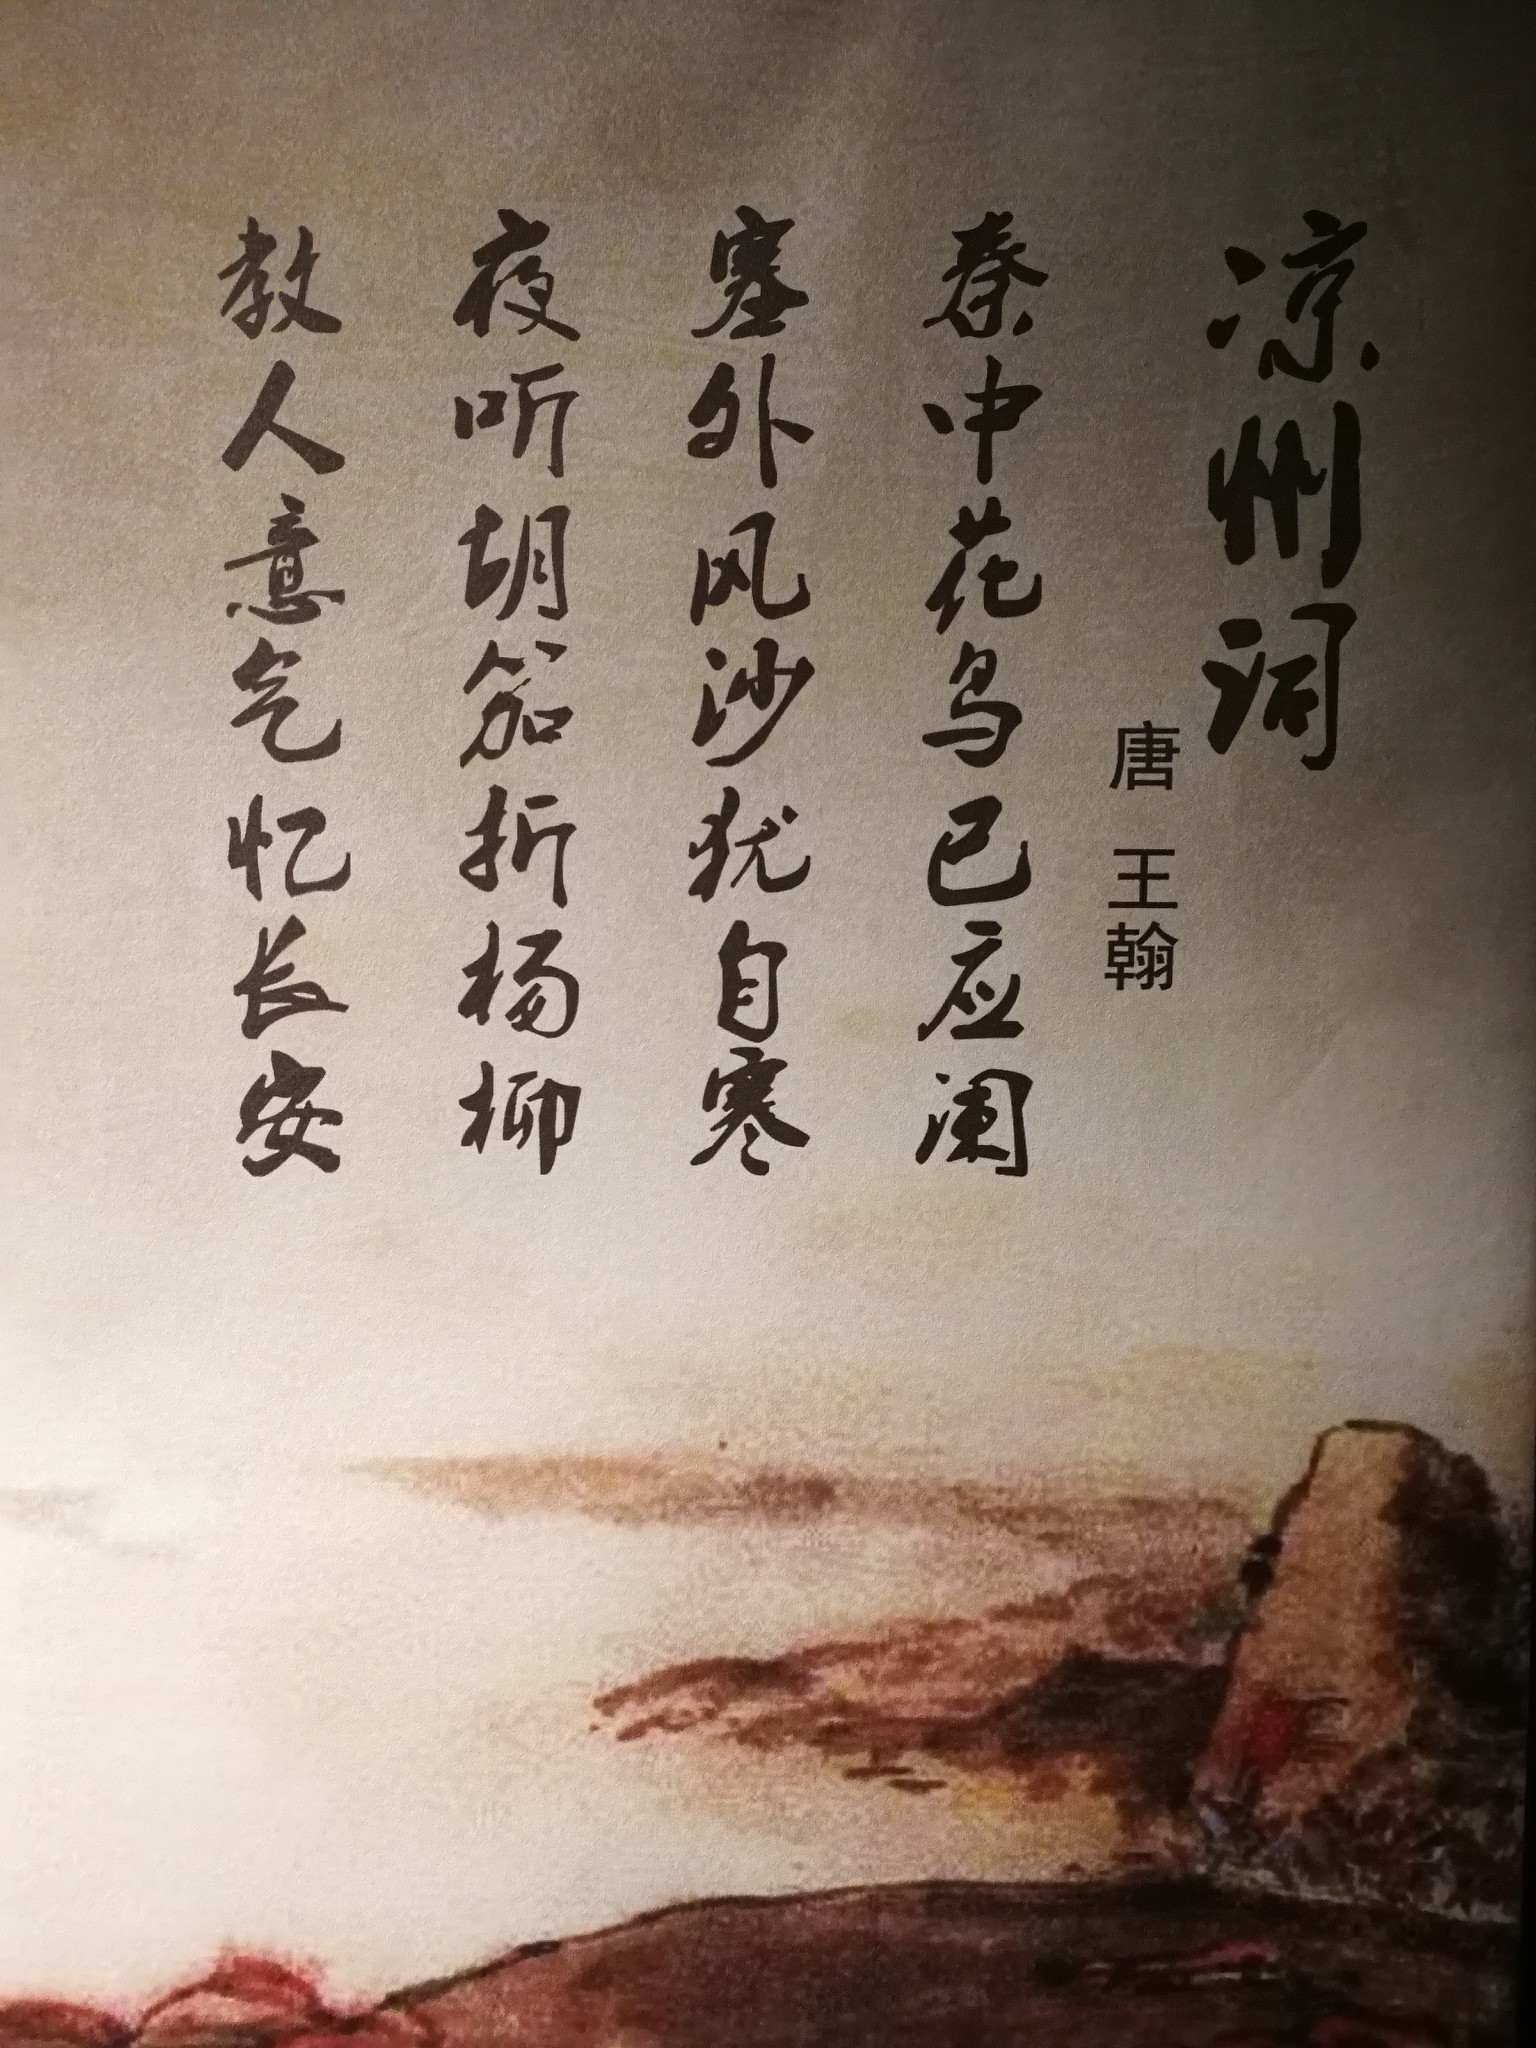 凉州词
唐 王翰
秦中花鸟已应阑
塞外风沙犹自寒
夜听胡笳折杨柳
教人意气忆长安